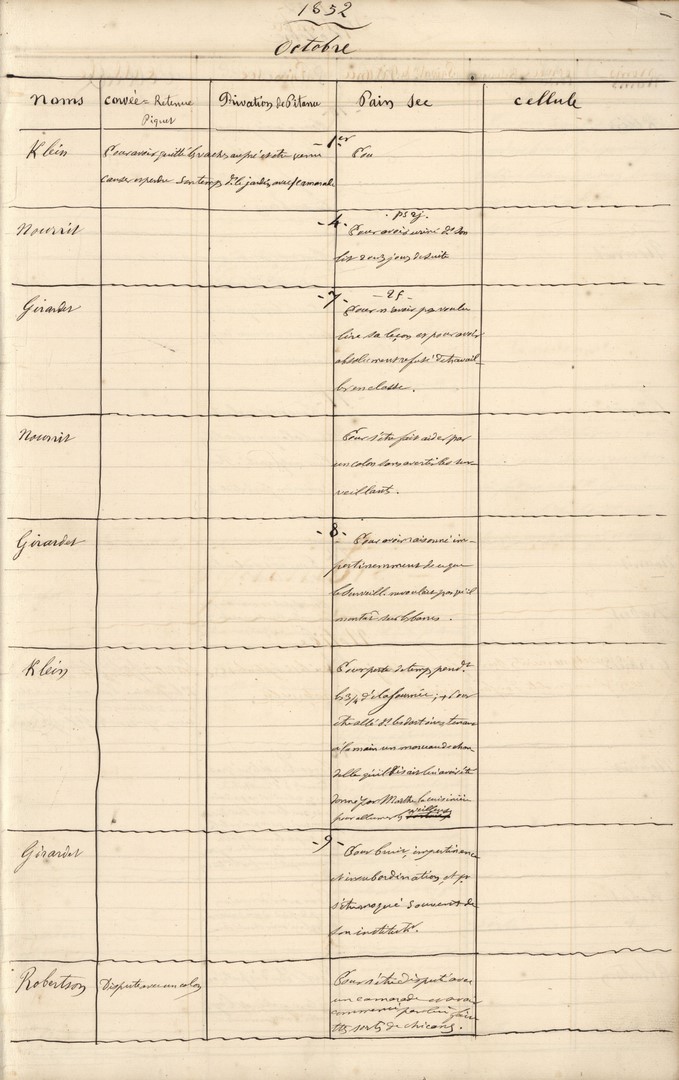 1852
Octobre
Noms
corvée = Retenue
Piquet
Privation de Pitance
Pain sec
cellule
1er
Klein
Pour avoir quitté les vaches au pré et être venu
causer et perdre son temps ds le jardin avec camarade
Pou
4
Nourrit
Pour avoir uriné ds son
lit 2 ou 3 jours de suite
7
Girardet
2f
Pour n'avoir pas voulu
lire sa leçon et pour avoir
absolument refusé de travail-
ler en classe.
Nourrit
Pour s'être fait aider par
un colon sans avertir les sur-
veillants.
8
Girardet
Pour avoir raisonné im-
pertinemment de ce que
le surveill. voulu pas qu'il
montât sur les barres.
Klein
Pour perte de temps pendt
les 3/4 de la journée; + Pour
être allé ds les dortoirs tenant
à la main un morceau de chan-
delle qu'il disait lui avoir été
donné par Marthe la cuisinière
pour allumer les veilleuses
9
Girardet
Pour bruit, impertinence
et insubordination, et pr
s'être moqué souvent de
son institutr.
Robertson
Dispute avec un colon
Pour s'être disputé avec
un camarade et avoir
commencé par lui faire
ttes sortes de chicanes.